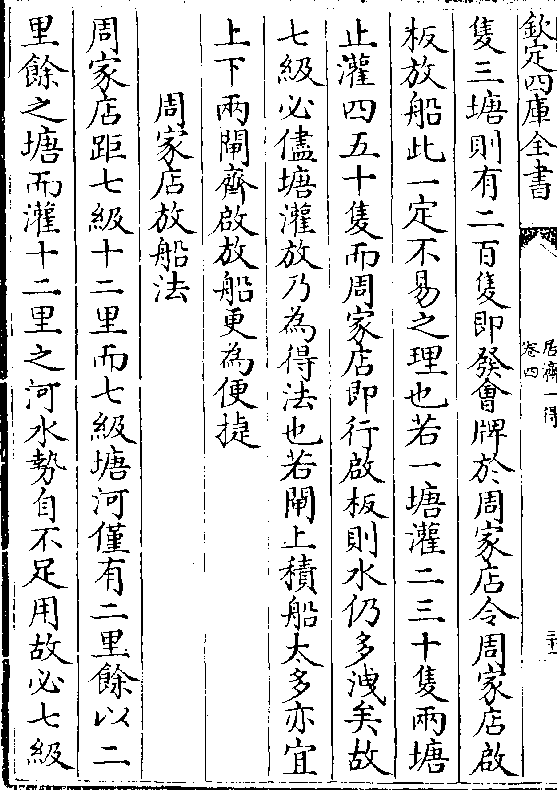 欽定四庫全書
居濟一得
卷四
隻三塘則有二百隻即發會牌於周家店令周家店啟
板放船此一定不易之理也若一塘灌二三十隻兩塘
止灌四五十隻而周家店即行啟板則水仍多洩矣故
七級必儘塘灌放乃為得法也若閘上積船太多亦宜
上下兩閘齊啟放船更為便捷
周家店放船法
周家店距七級十二里而七級塘河僅有二里餘以二
里餘之塘而灌十二里之河水勢自不足用故必七級